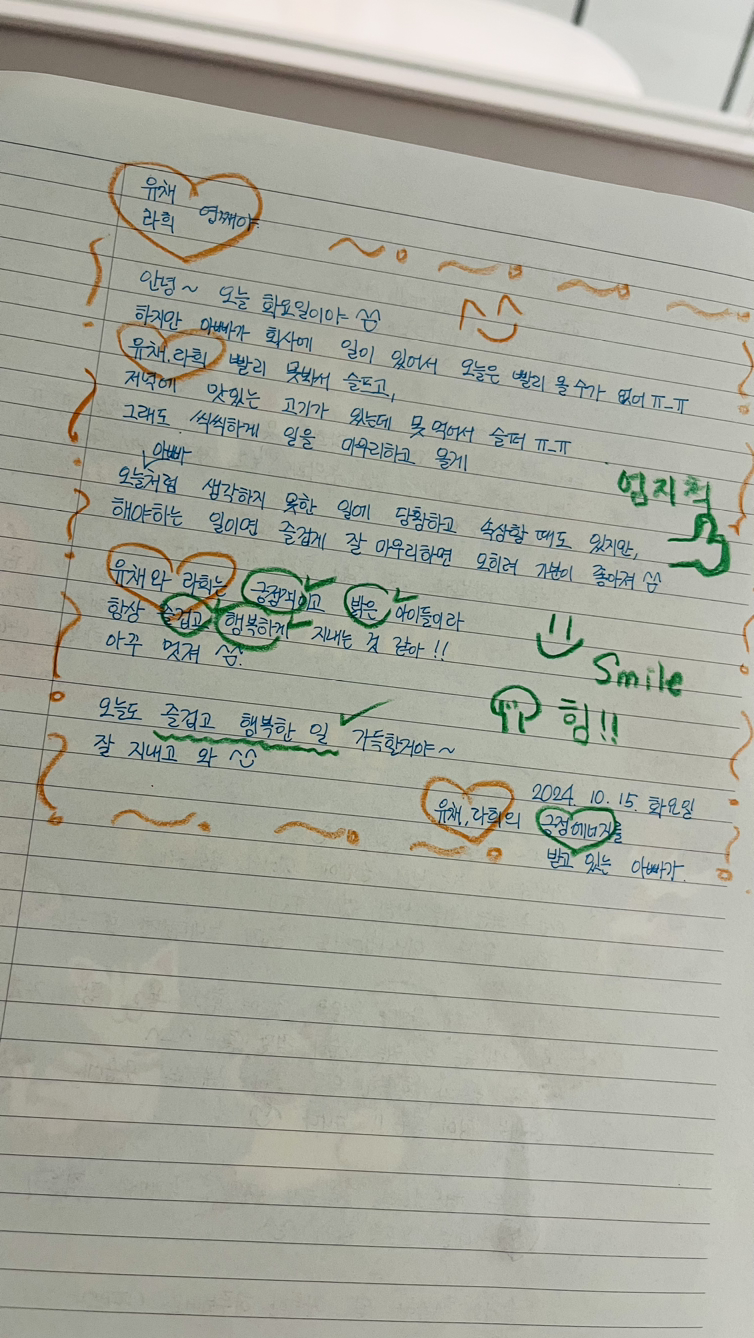 유채
라희 염찌야
안녕~ 오늘 화요일이야 ^^
하지만 아빠가 회사에 일이 있어서 오늘은 빨리 올 수가 없어 ㅠ_ㅠ
유채, 라희 빨리 못봐서 슬프고,
저녁에 맛있는 고기가 있는데 못 먹어서 슬퍼 ㅠ_ㅠ
그래도 씩씩하게 일을 마무리하고 올게
엄지척
아빠
오늘처럼 생각하지 못한 일에 당황하고 속상할 때도 있지만,
해야하는 일이면 즐겁게 잘 마무리하면 오히려 기분이 좋아져 ^^
유채와 라희는 긍정적이고 밝은 아이들이라
항상 즐겁고 행복하게 지내는 것 같아!!
아주 멋져 ^^.
Smile
힘!!
오늘도 즐겁고 행복한 일 가득할거야~
잘 지내고 와 ^^
2024. 10. 15. 화요일
유채, 라희의 긍정에너지를
받고 있는 아빠가.